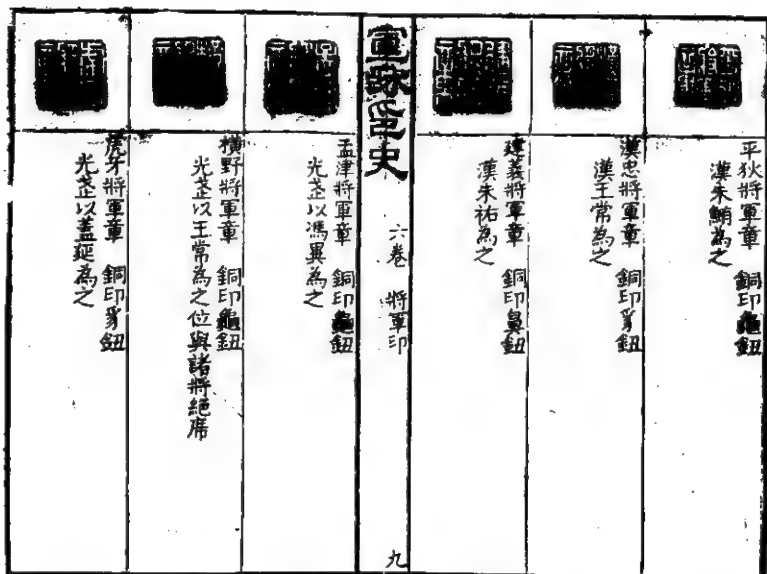 平狄將軍章 銅印龜鈕
漢朱鮪為之
漢忠將軍章 銅印豸鈕
漢王常為之
建義將軍章 銅印鼻鈕
漢朱祐為之
宣龢印史 六卷 將軍印 九
孟津將軍章 銅印龜鈕
光武以馮異為之
橫野將軍章 銅印龜鈕
光武以王常為之位與諸將絕席
虎牙將軍章 銅印豸鈕
光武以蓋延為之